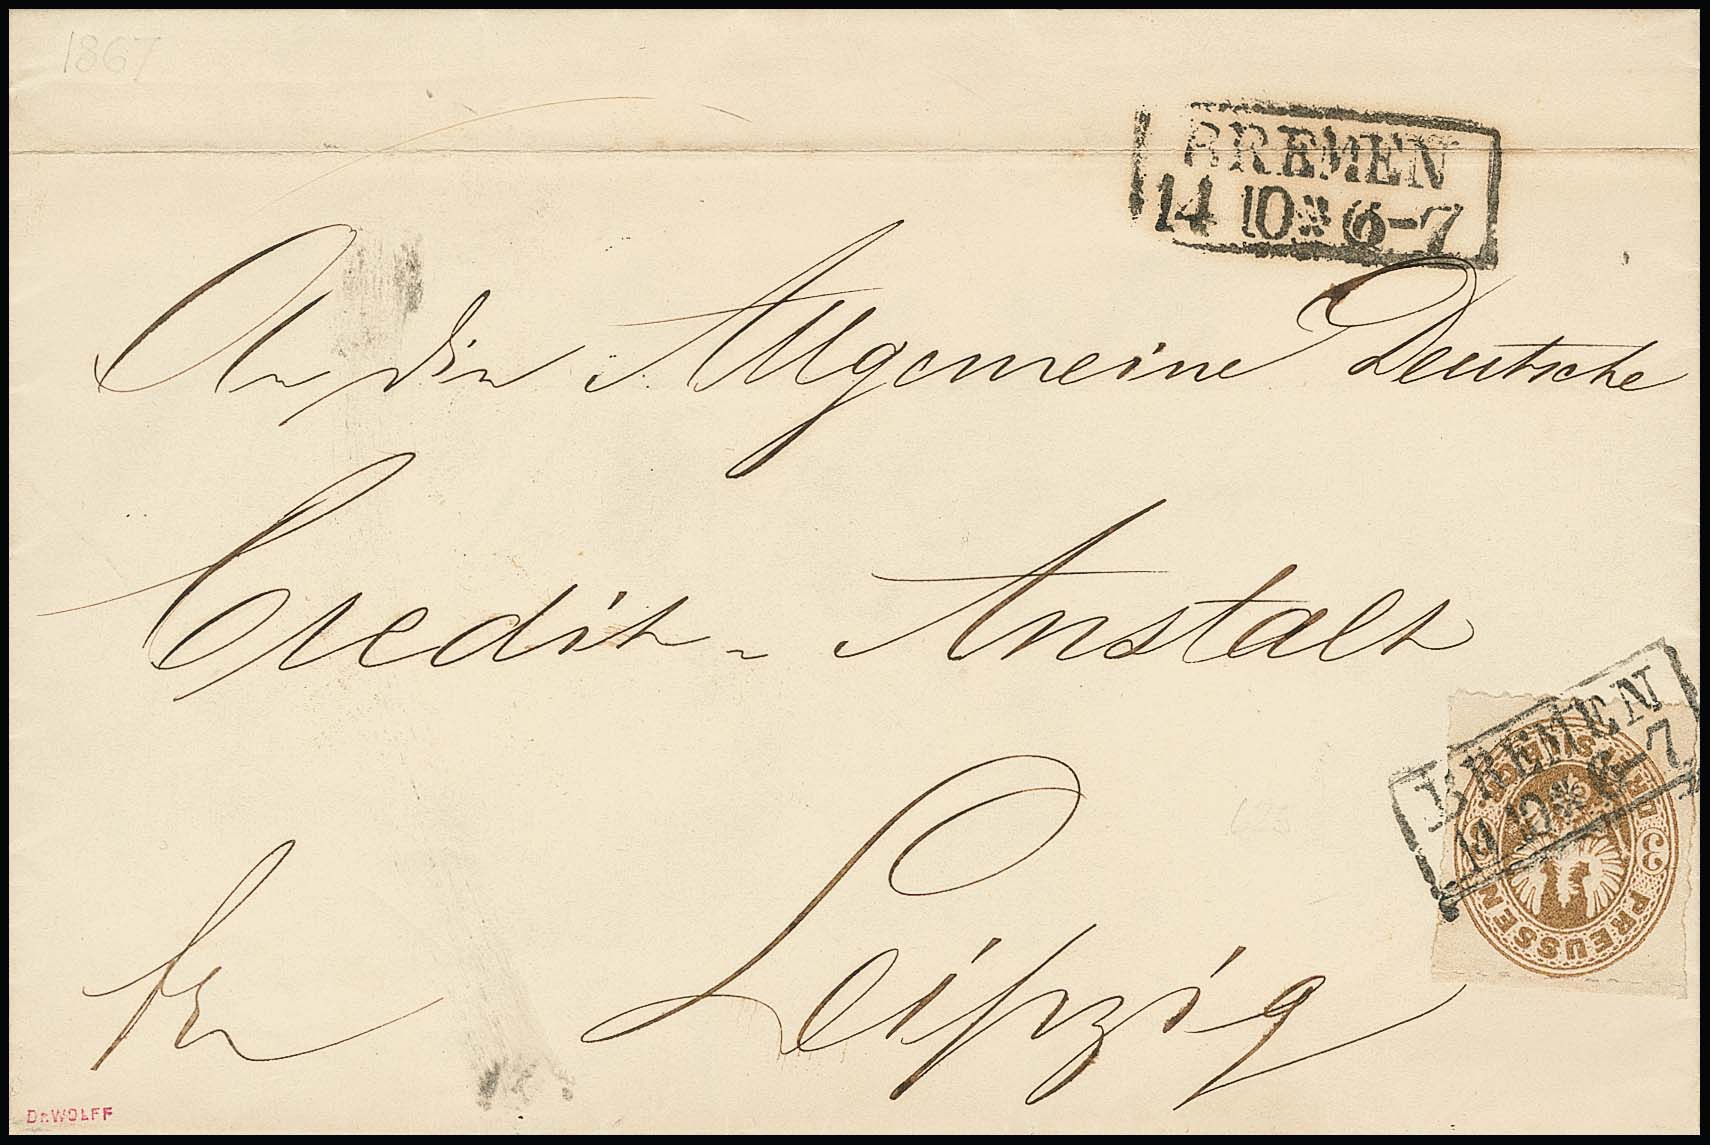 1867
BREMEN
14 10 * 6-7
An die Allgemeine Deutsche
Credit-Anstalt
BREMEN
14 10 * 6-7
3 3
PREUSSEN
fr
Leipzig
Dr. WOLFF